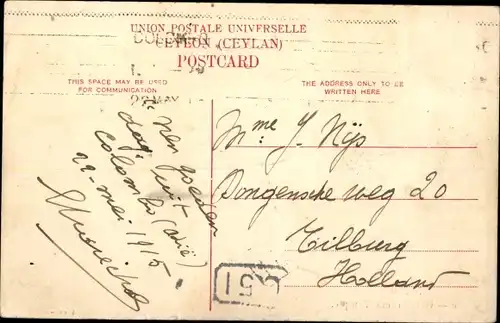 UNION POSTALE UNIVERSELLE
CEYLON (CEYLAN)
POSTCARD
THIS SPACE MAY BE USED
FOR COMMUNICATION
THE ADDRESS ONLY TO BE
WRITTEN HERE
22 MAY
nen goeden
dag uit
Colombo (Azië)
22 mei 1915
Mme J. Nijs
Dongensche weg 20
Tilburg
Holland
51